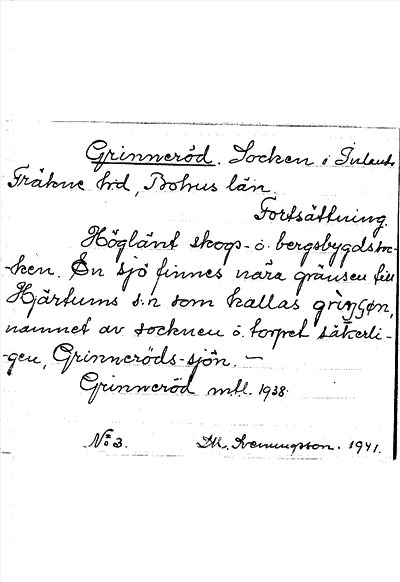 Grinneröd. Socken i Inlands
Fräkne hd, Bohus län.
Fortsättning.
Höglänt skogs- o. bergsbygdssoc-
-ken. En sjö finnes nära gränsen till
Hjärtums s:n som kallas grìnʒøn,
namnet av socknen o. torpet säkerli-
-gen, Grinneröds-sjön. —
Grinneröd mtl. 1938.
No 3. Svenningsson. 1941.